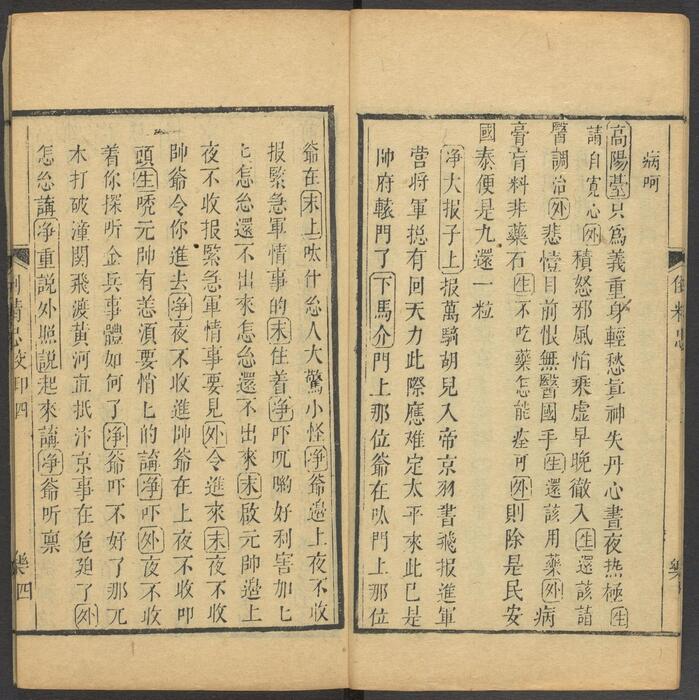 病呵
高陽臺只爲義重身輕愁眞神失丹心晝夜热極生
請自寬心外積怒邪風怕乘虛早晚徹入生還該請
醫調治外悲憶目前恨無醫國手生還該用藥外病
膏肓料非藥石生不吃藥怎能痊可外則除是民安
國泰便是九還一粒
净大报子上报萬騎胡兒入帝京羽書飛报進軍
营将軍揔有回天力此際應难定太平來此已是
帅府轅門了下馬介門上那位爺在㕸門上那位
爺在末上㕸什么人大驚小怪净爺邉上夜不收
报緊急軍情事的末住着净吓呪喲好利害加匕
匕怎么還不出來怎么還不出來末啟元帅邉上
夜不收报緊急軍情事要見外令進來末夜不收
帥爺令你進去净夜不收進帥爺在上夜不收叩
頭生唗元帥有恙湏要悄匕的講净吓外夜不收
着你探听金兵事體如何了净爺吓不好了那兀
术打破潼關飛渡黃河直抵汴京事在危廹了外
怎么講净重説外照説起來講净爺听禀
倒精忠 交印四
樂 四